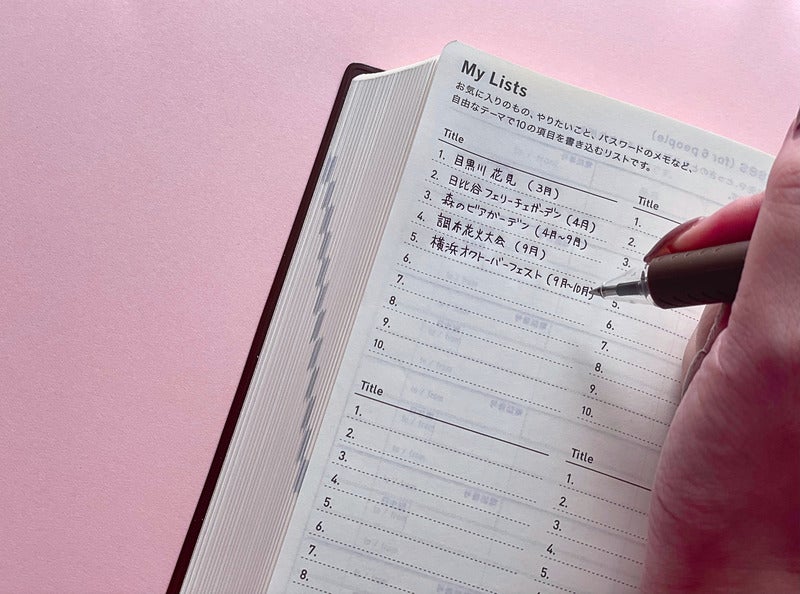 My Lists
お気に入りのもの、やりたいこと、パスワードのメモなど、
自由なテーマで10の項目を書き込むリストです。
Title
1. 目黒川 花見 (3月)
2. 日比谷フェリーチェガーデン (4月)
3. 森のビアガーデン (4月〜9月)
4. 調布花火大会 (9月)
5. 横浜オクトーバーフェスト (9月〜10月)
6.
7.
8.
9.
10.
Title
1.
2.
3.
5.
6.
7.
8.
9.
10.
Title
1.
2.
3.
4.
5.
6.
7.
8.
Title
1.
2.
3.
4.
5.